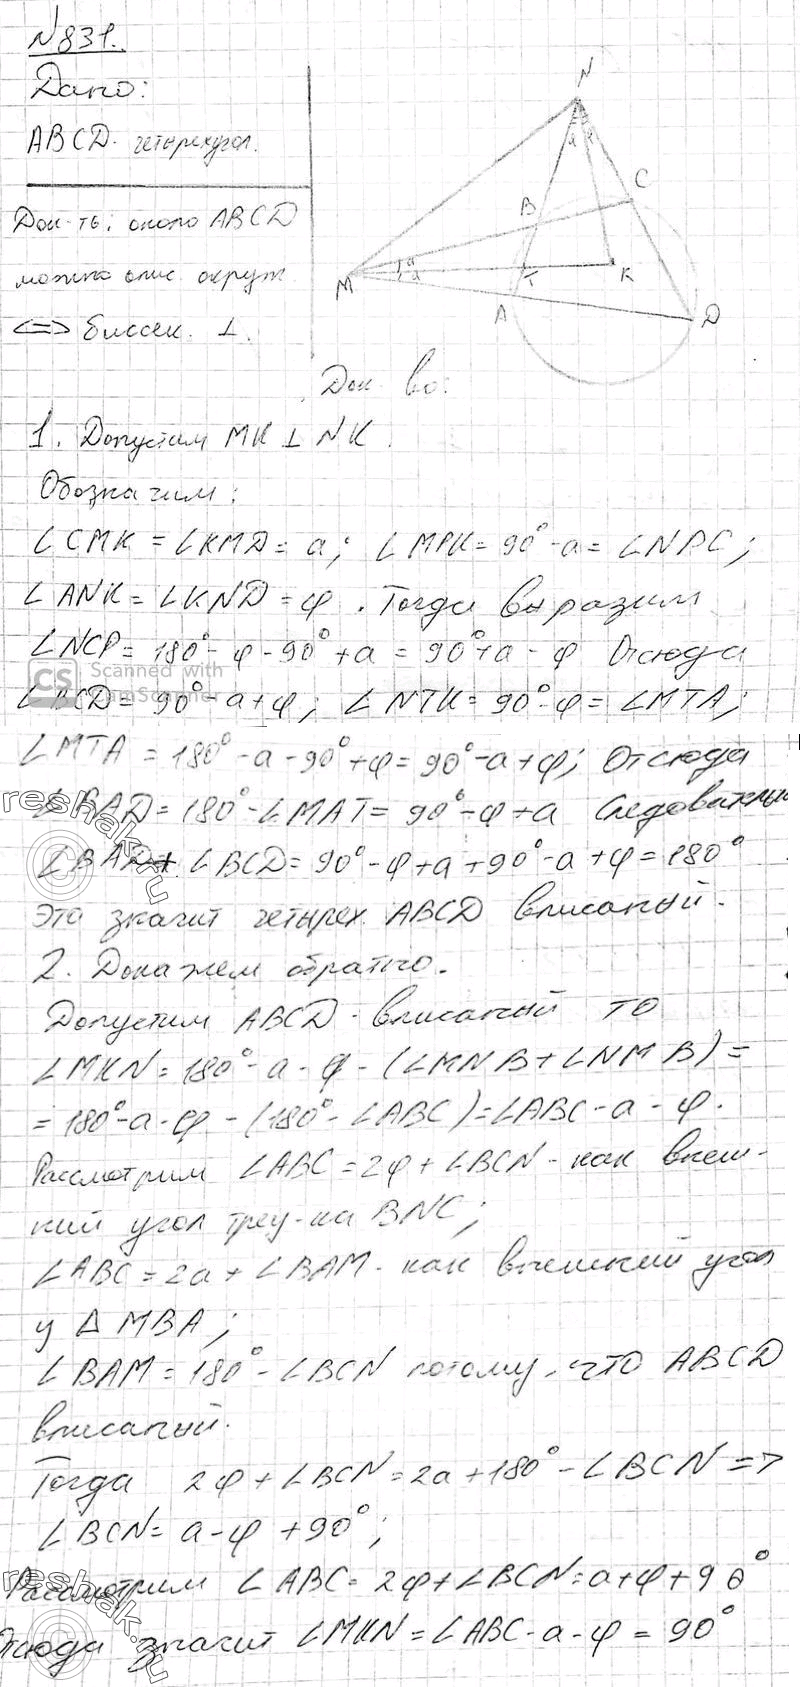 №831.
Дано:
ABCD четырехугол.
Док-ть: около ABCD
можно опис. окруж.
<=> биссек. ⊥.
N
C
B
M
T
K
A
D
Док-во:
1. Допустим MK ⊥ NK.
Обозначим:
∠CMK = ∠KMD = a; ∠MPK = 90° - a = ∠NPC;
∠ANK = ∠KND = φ. Тогда выразим
∠NCP = 180° - φ - 90° + a = 90° + a - φ Отсюда
∠BCD = 90° - a + φ; ∠NTK = 90° - φ = ∠MTA;
CS Scanned with CamScanner
∠MTA = 180° - a - 90° + φ = 90° - a + φ; Отсюда
∠BAD = 180° - ∠MAT = 90° - φ + a Следовательно
∠BAD + ∠BCD = 90° - φ + a + 90° - a + φ = 180°
Это значит четырех. ABCD вписаный.
reshak.ru
2. Докажем обратно.
Допустим ABCD - вписаный то
∠MKN = 180° - a - φ - (∠MNB + ∠NMB) =
= 180° - a - φ - (180° - ∠ABC) = ∠ABC - a - φ.
Рассмотрим ∠ABC = 2φ + ∠BCN - как внеш-
ний угол треу-ка BNC;
∠ABC = 2a + ∠BAM - как внешний угол
у Δ MBA;
∠BAM = 180° - ∠BCN потому, что ABCD
вписаный.
Тогда 2φ + ∠BCN = 2a + 180° - ∠BCN =>
∠BCN = a - φ + 90°;
Рассмотрим ∠ABC = 2φ + ∠BCN = a + φ + 90°
Отсюда значит ∠MKN = ∠ABC - a - φ = 90°
reshak.ru